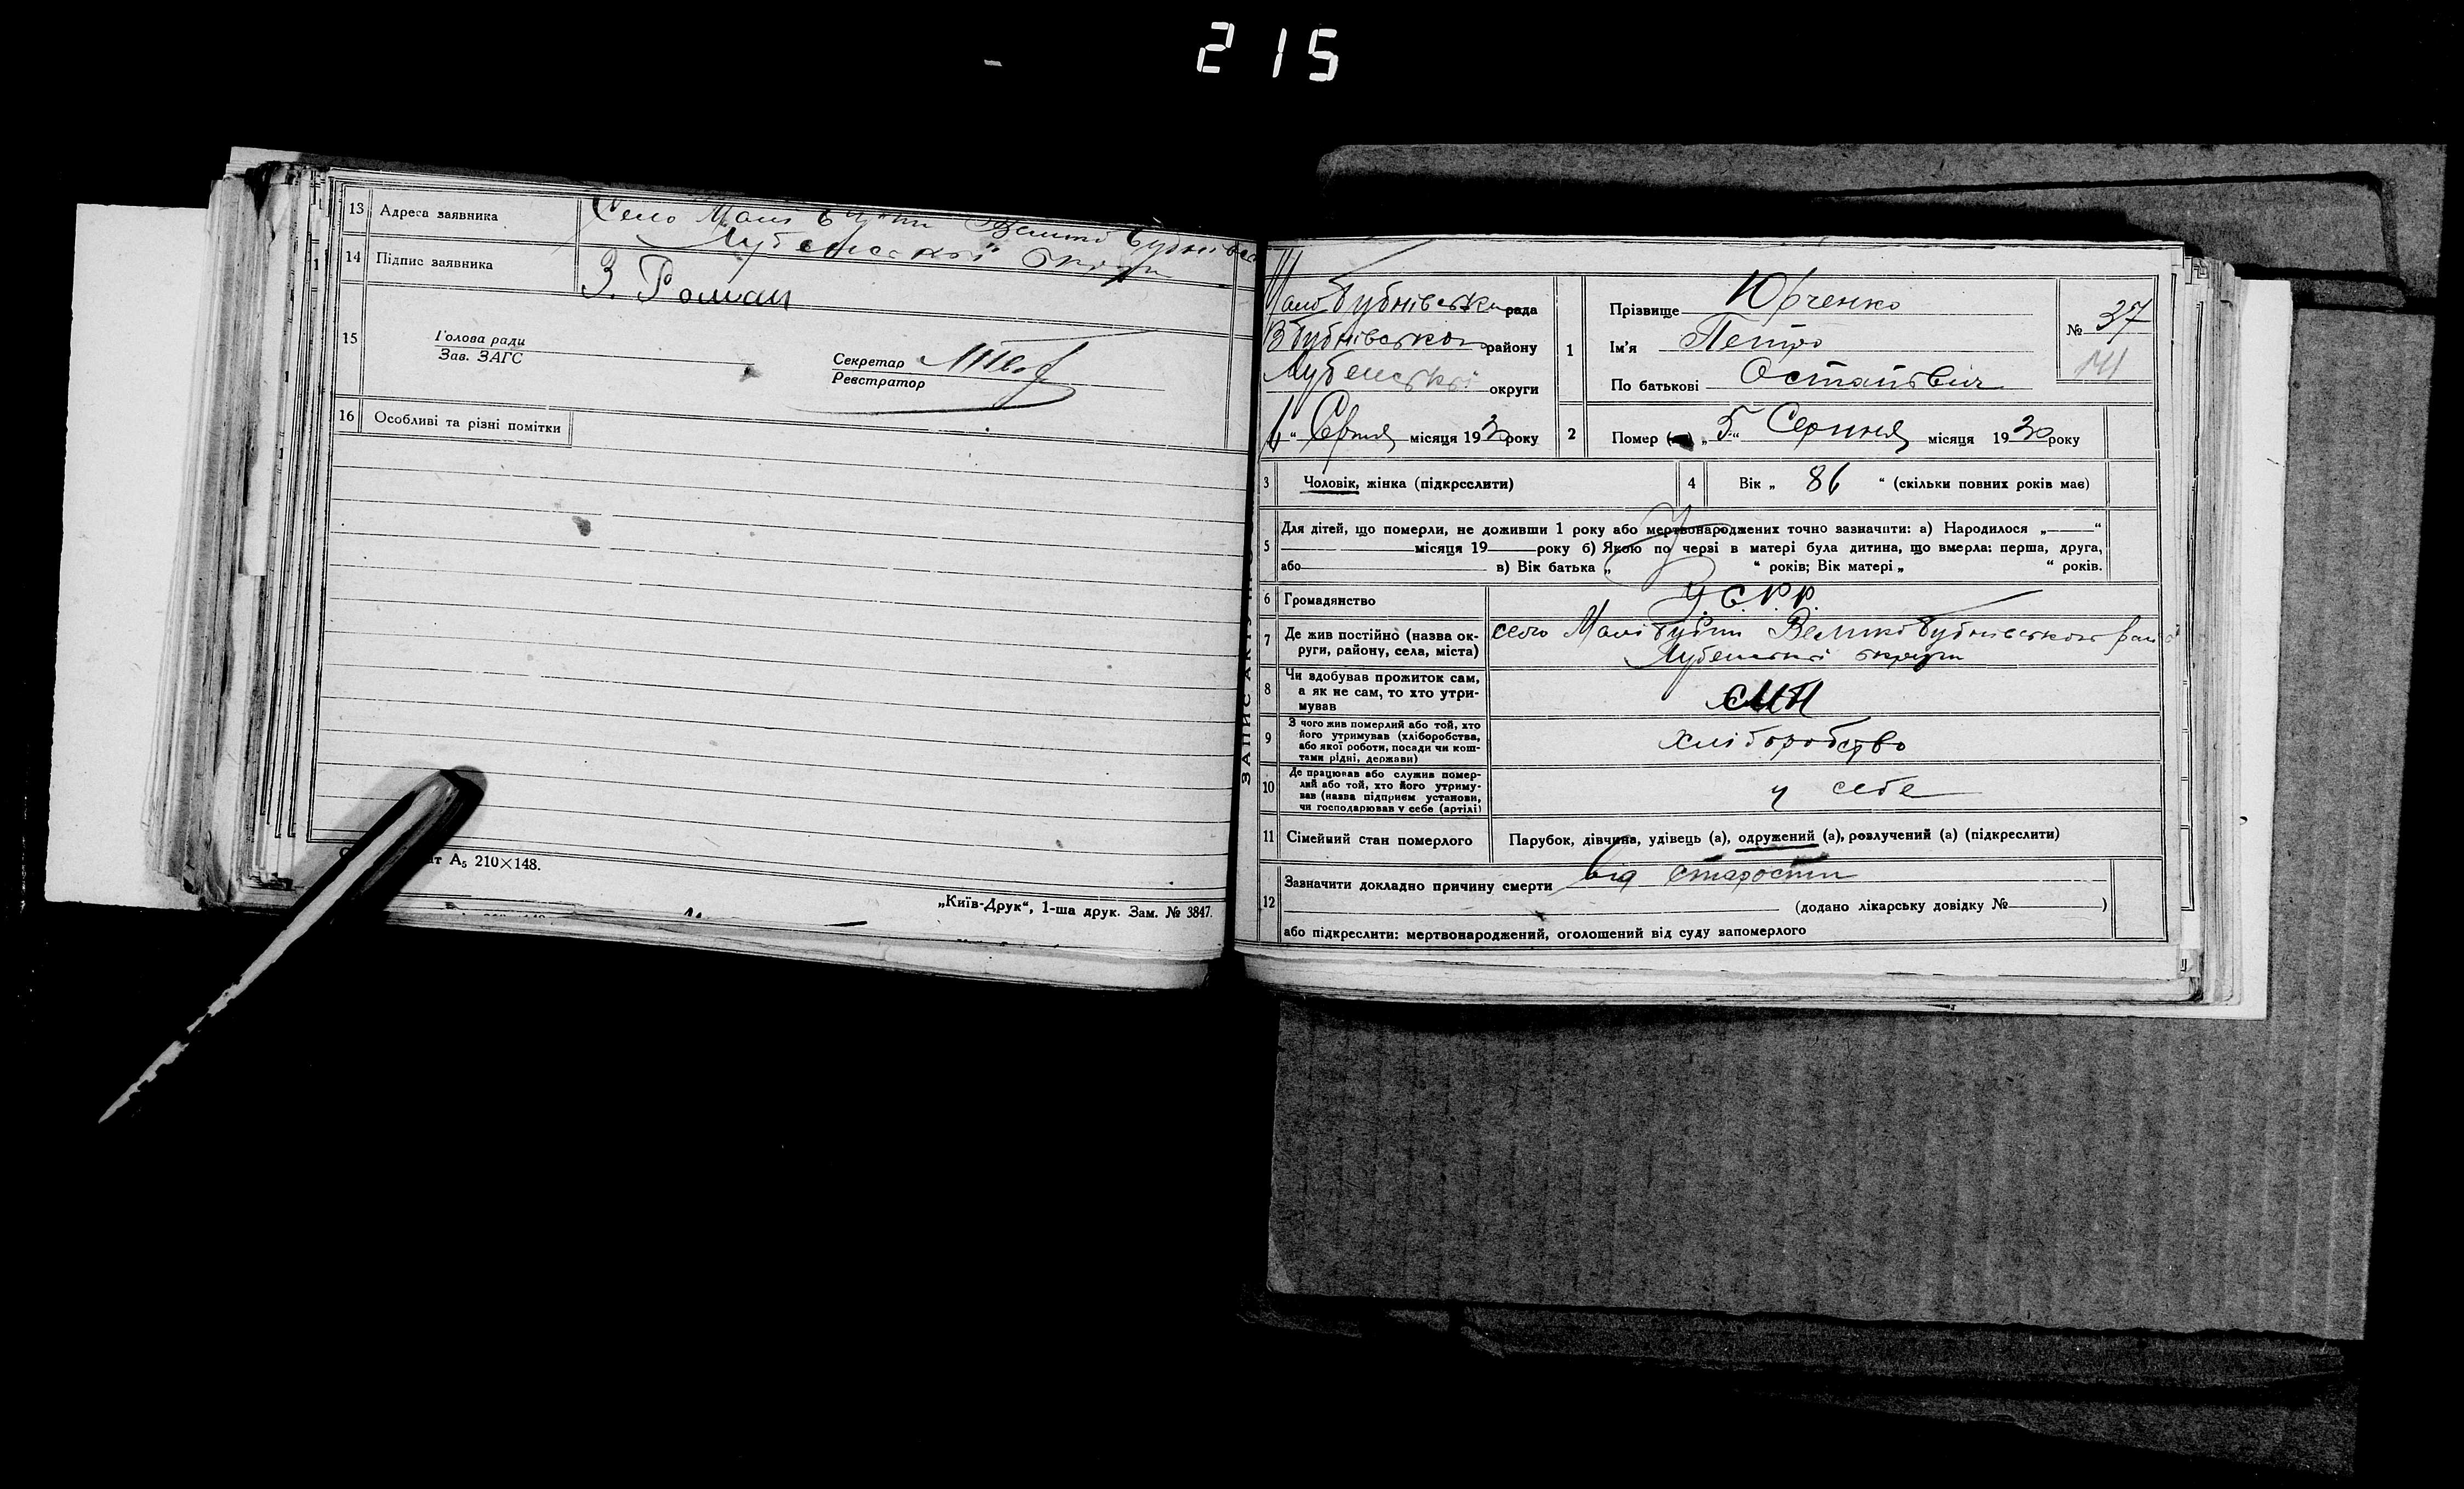 215
13 Адреса заявника Село Малі Бубни Велико Бубнівсько
Лубенської Округи
14 Підпис заявника З. Роман
15 Голова ради
Зав. ЗАГС
Секретар
Реєстратор
16 Особливі та різні помітки
ат А₅ 210×148.
„Київ-Друк“, 1-ша друк. Зам. № 3847.
ЗАПИС АКТУ ПРО
Мало Бубнівська рада
ВБубнівського району
Лубенської округи
Серпня місяця 1930 року
1 Прізвище Юрченко
Ім'я Петро
По батькові Остапович
№ 37
141
2 Помер „5“ Серпня місяця 1930 року
3 Чоловік, жінка (підкреслити)
4 Вік „ 86 “ (скільки повних років має)
5 Для дітей, що померли, не доживши 1 року або мертвонароджених точно зазначити: а) Народилося „ “
місяця 19 року б) Якою по черзі в матері була дитина, що вмерла: перша, друга,
або в) Вік батька „ “ років; Вік матері „ “ років.
6 Громадянство У.С.Р.Р.
7 Де жив постійно (назва ок-
руги, району, села, міста)
село Малі Бубни Велико Бубнівського рай
Лубенської округи
8 Чи здобував прожиток сам,
а як не сам, то хто утри-
мував
9 З чого жив померлий або той, хто
його утримував (хліборобства,
або якої роботи, посади чи кош-
тами рідні, держави)
хліборобство
10 Де працював або служив помер-
лий або той, хто його утриму-
вав (назва підприєм установи,
чи господарював у себе (артілі)
у себе
11 Сімейний стан померлого Парубок, дівчина, удівець (а), одружений (а), розлучений (а) (підкреслити)
12 Зазначити докладно причину смерти від старости
(додано лікарську довідку № )
або підкреслити: мертвонароджений, оголошений від суду запомерлого